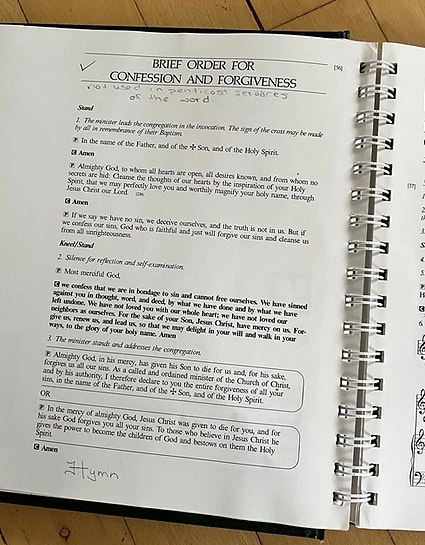 BRIEF ORDER FOR
CONFESSION AND FORGIVENESS
[56]
not used in penticost services
of the word.
Stand
1. The minister leads the congregation in the invocation. The sign of the cross may be made
by all in remembrance of their Baptism.
P In the name of the Father, and of the ✠ Son, and of the Holy Spirit.
C Amen
P Almighty God, to whom all hearts are open, all desires known, and from whom no
secrets are hid: Cleanse the thoughts of our hearts by the inspiration of your Holy
Spirit, that we may perfectly love you and worthily magnify your holy name, through
Jesus Christ our Lord.
C Amen
P If we say we have no sin, we deceive ourselves, and the truth is not in us. But if
we confess our sins, God who is faithful and just will forgive our sins and cleanse us
from all unrighteousness.
Kneel/Stand
2. Silence for reflection and self-examination.
P Most merciful God,
C we confess that we are in bondage to sin and cannot free ourselves. We have sinned
against you in thought, word, and deed, by what we have done and by what we have
left undone. We have not loved you with our whole heart; we have not loved our
neighbors as ourselves. For the sake of your Son, Jesus Christ, have mercy on us. For-
give us, renew us, and lead us, so that we may delight in your will and walk in your
ways, to the glory of your holy name. Amen
3. The minister stands and addresses the congregation.
P Almighty God, in his mercy, has given his Son to die for us and, for his sake,
forgives us all our sins. As a called and ordained minister of the Church of Christ,
and by his authority, I therefore declare to you the entire forgiveness of all your
sins, in the name of the Father, and of the ✠ Son, and of the Holy Spirit.
OR
P In the mercy of almighty God, Jesus Christ was given to die for you, and for
his sake God forgives you all your sins. To those who believe in Jesus Christ he
gives the power to become the children of God and bestows on them the Holy
Spirit.
C Amen
Hymn
[57]